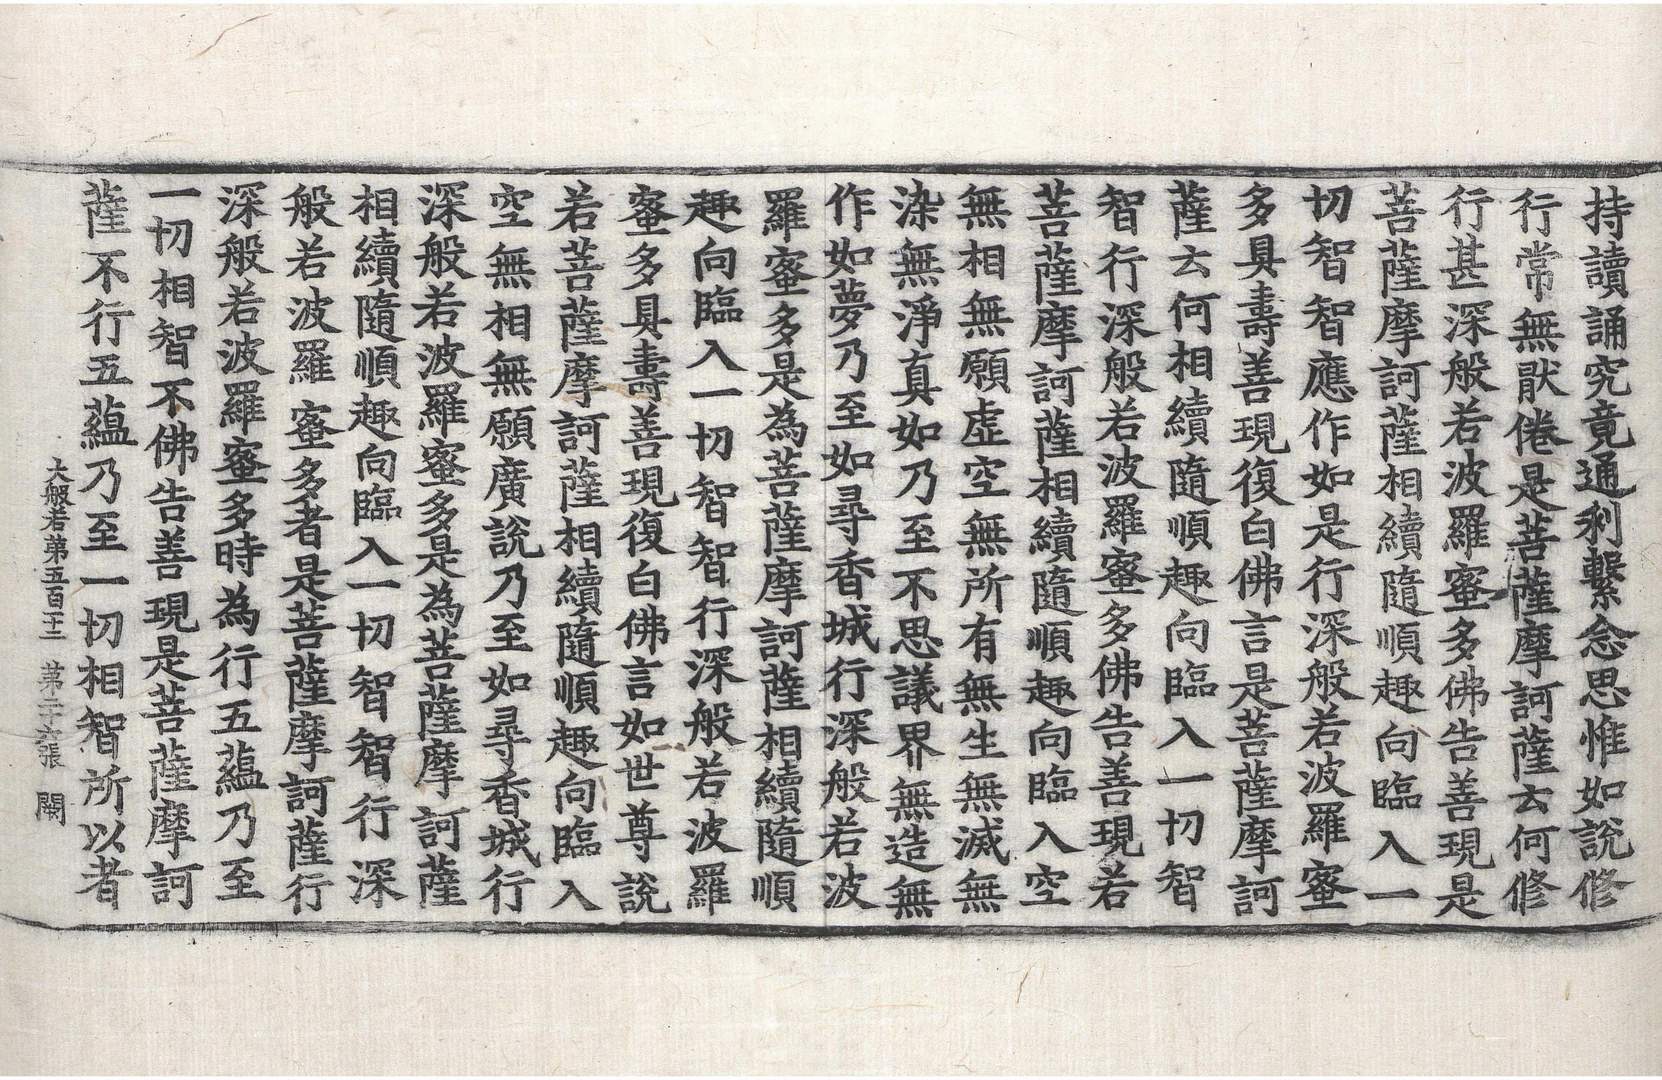 持讀誦究竟通利繫念思惟如說修
行常無猒倦是菩薩摩訶薩云何修
行甚深般若波羅蜜多佛告善現是
菩薩摩訶薩相續隨順趣向臨入一
切智智應作如是行深般若波羅蜜
多具壽善現復白佛言是菩薩摩訶
薩云何相續隨順趣向臨入一切智
智行深般若波羅蜜多佛告善現若
菩薩摩訶薩相續隨順趣向臨入空
無相無願虛空無所有無生無滅無
染無淨真如乃至不思議界無造無
作如夢乃至如尋香城行深般若波
羅蜜多是為菩薩摩訶薩相續隨順
趣向臨入一切智智行深般若波羅
蜜多具壽善現復白佛言如世尊說
若菩薩摩訶薩相續隨順趣向臨入
空無相無願廣說乃至如尋香城行
深般若波羅蜜多是為菩薩摩訶薩
相續隨順趣向臨入一切智智行深
般若波羅蜜多者是菩薩摩訶薩行
深般若波羅蜜多時為行五蘊乃至
一切相智不佛告善現是菩薩摩訶
薩不行五蘊乃至一切相智所以者
大般若第五百十二 第二十六張 闕